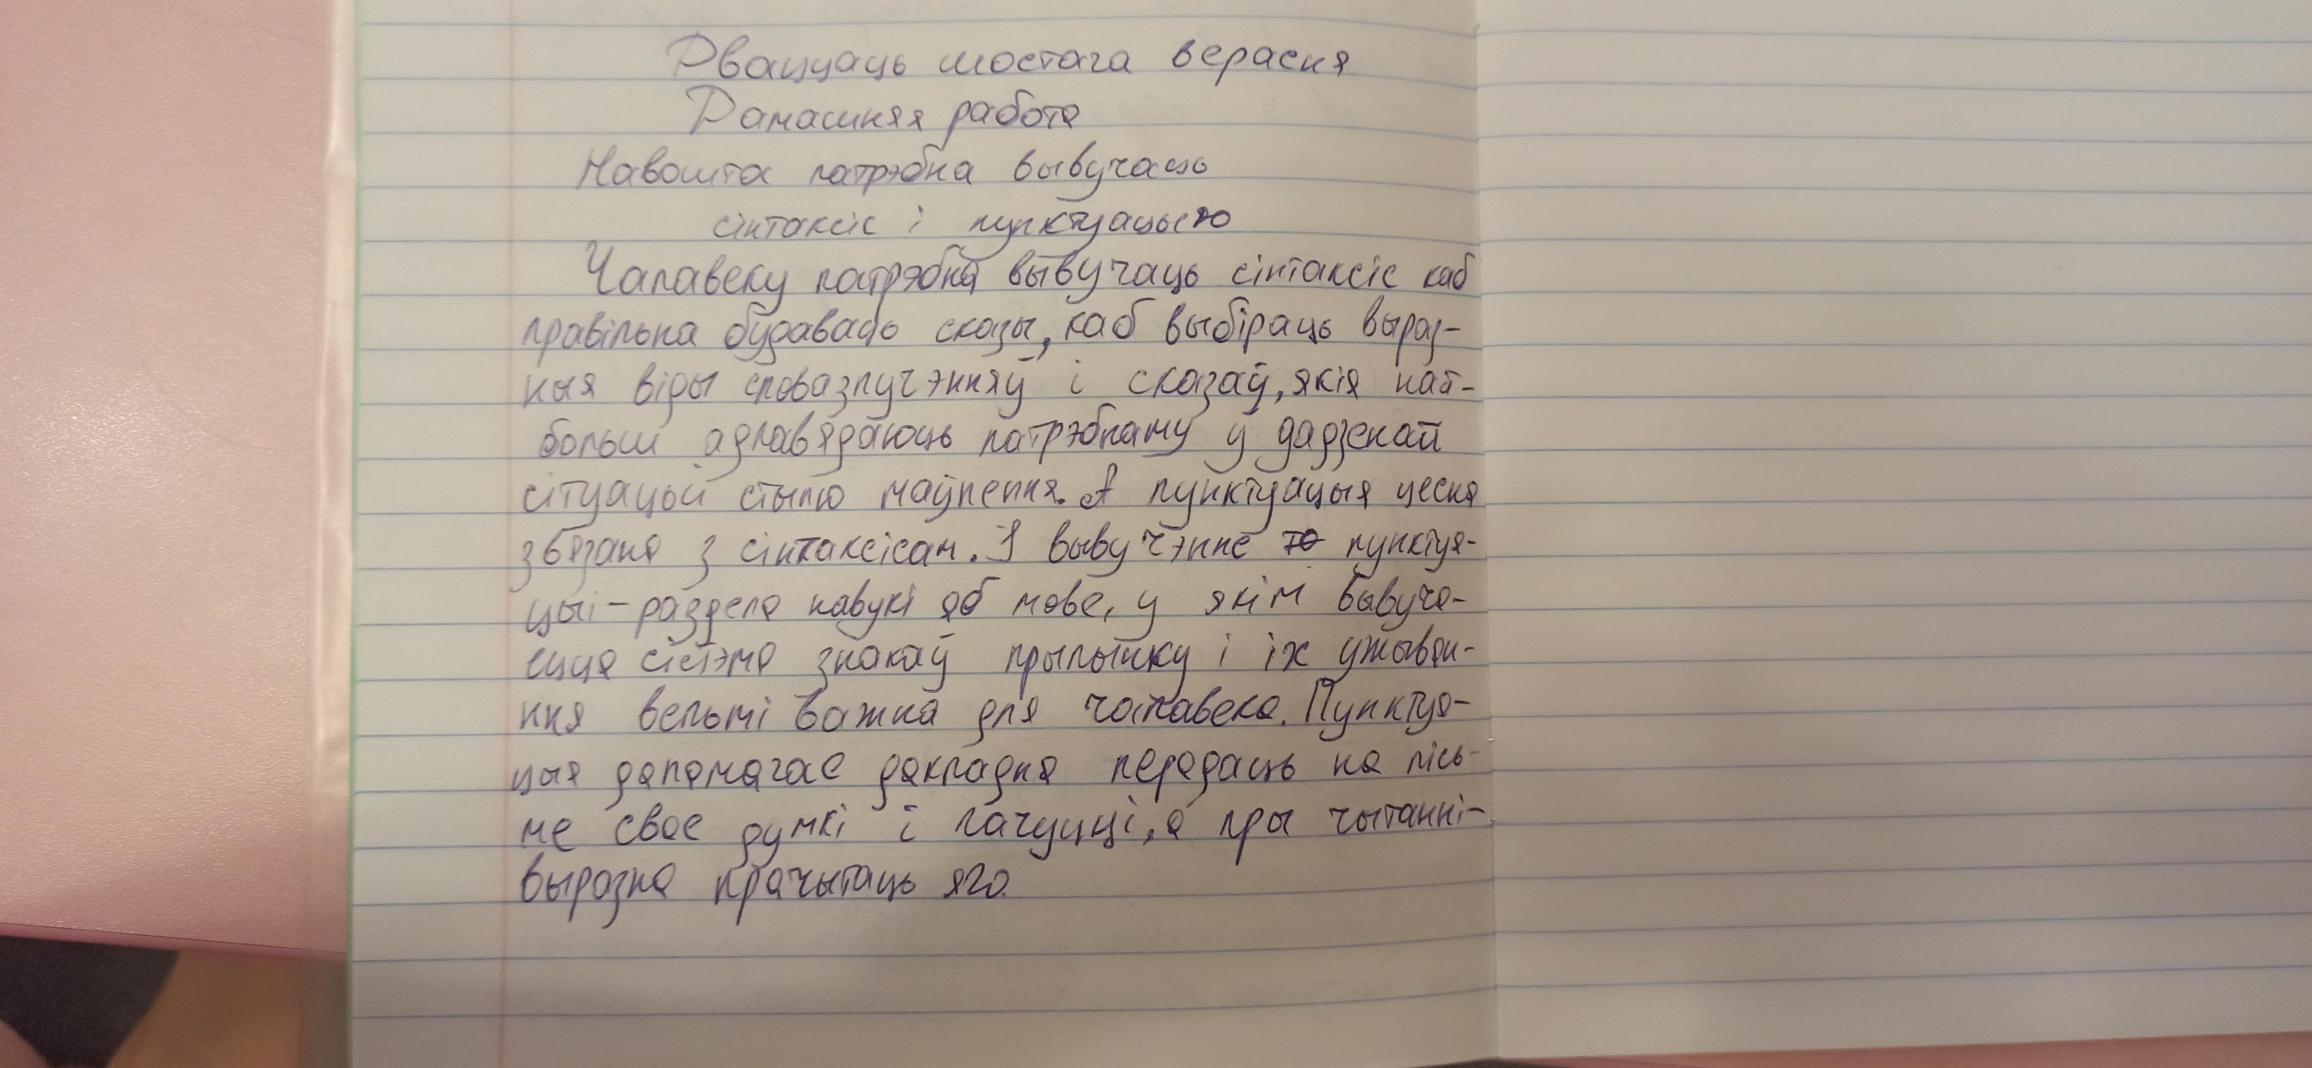 Дваццаць шостага верасня
Дамашняя работа
Навошта патрэбна вывучаць
сінтаксіс і пунктуацыю
Чалавеку патрэбна вывучаць сінтаксіс каб
правільна будаваць сказы, каб выбіраць выраз-
ныя віды словазлучэнняў і сказаў, якія най-
больш адпавядаюць патрэбнаму ў дадзенай
сітуацыі стылю маўлення. А пунктуацыя цесна
звязана з сінтаксісам. І вывучэнне пунктуа-
цыі - раздела навукі аб мове, у якім вывуча-
ецца сістэма знакаў прыпынку і іх ужыван-
ня вельмі важна для чалавека. Пунктуа-
цыя дапамагае дакладна перадаць на пісь-
ме свае думкі і пачуцці, а пры чытанні-
выразна прачытаць яго.